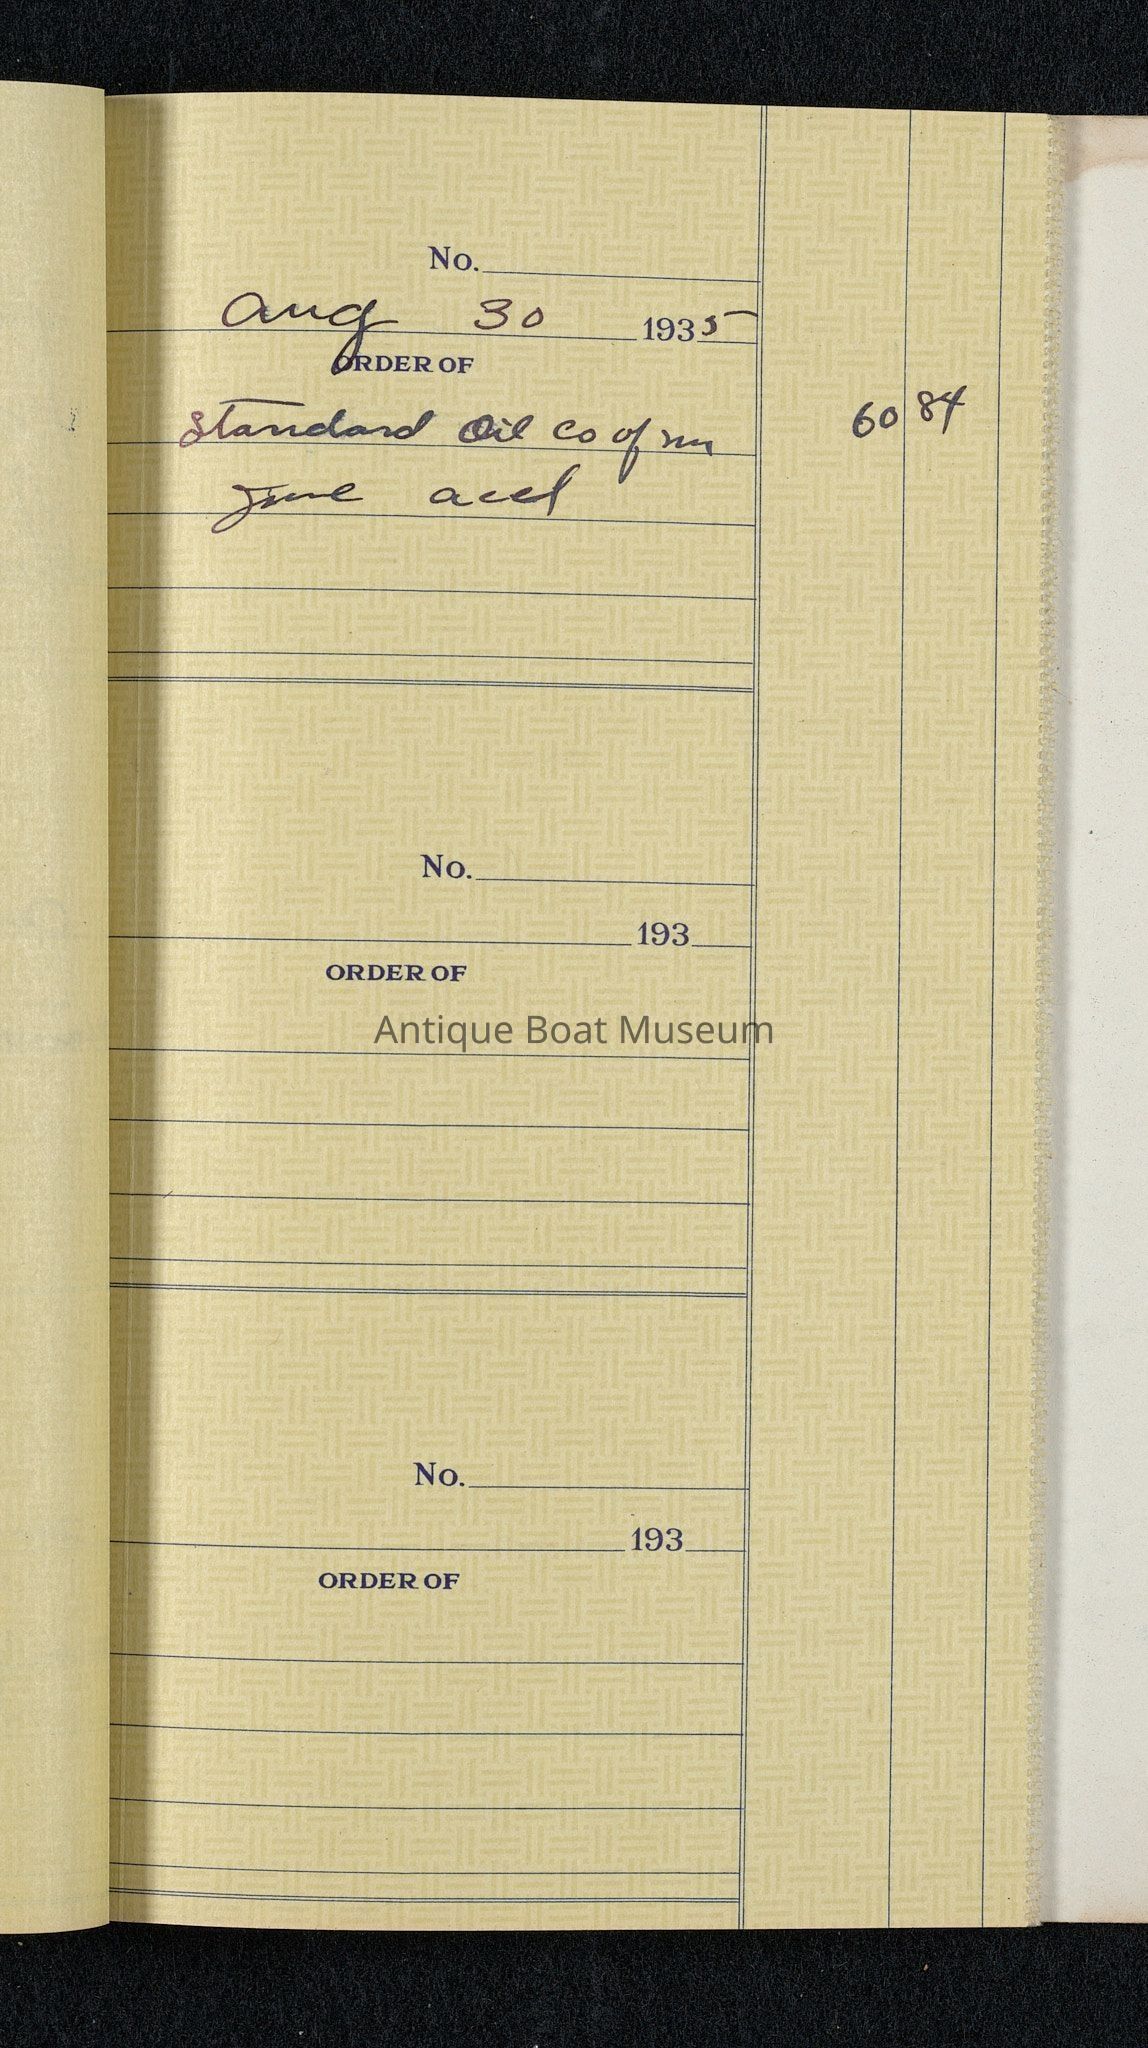 No.
Aug 30 1935
ORDER OF
Standard Oil Co of
60 84
June acct
No.
193
ORDER OF
Antique Boat Museum
No.
193
ORDER OF